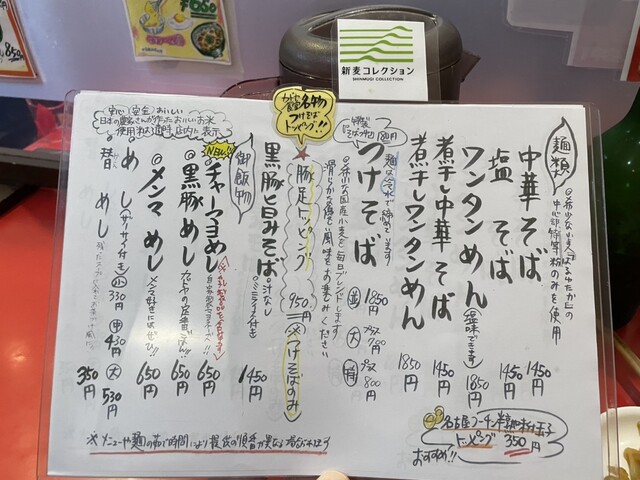 新麦コレクション
SHINMUGI COLLECTION
麺類
◎希少な小麦「はるゆたか」の
中心部特等粉のみを使用
中華そば 1450円
塩そば 1450円
ワンタンめん(塩味できます) 1850円
煮干し中華そば 1450円
煮干しワンタンめん 1850円
つけそば 1850円
並
大 プラス
特 プラス 800円
麺は冷水で締めてます
◎希少な国産小麦を毎日ブレンドします
滑らかな麺の風味をお楽しみください
名物
つけそば
トッピング!!
豚足トッピング 950円
※つけそばのみ
黒豚旨みそば ◎汁なし
◎ミニライス付き
1450円
御飯物
安心 安全 おいしい
日本の農家さんが作ったおいしいお米
NEW!!
チャーマヨめし 650円
黒豚めし 650円
メンマめし 650円
メンマ好きにはぜひ!!
めし(ザーサイ付き) 小 330円 中 430円 大 530円
替めし 350円
名古屋コーチン半熟味付玉子
トッピング 350円
おすすめ!!
※メニューや麺の茹で時間により提供の順番が異なる場合が御座います